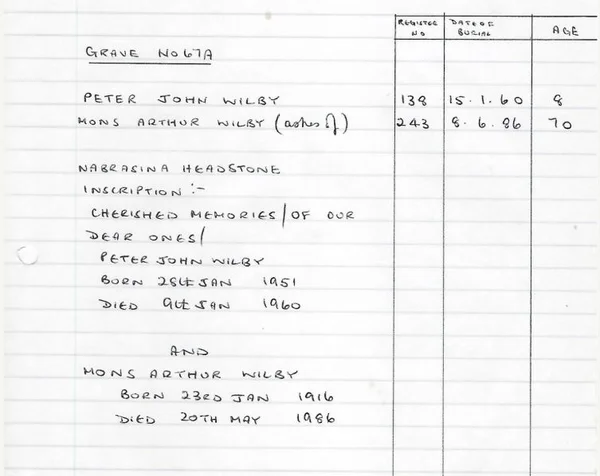 REGISTER NO DATE OF BURIAL AGE
GRAVE NO 67A
PETER JOHN WILBY 138 15.1.60 8
MONS ARTHUR WILBY (ashes of) 243 8.6.86 70
NABRASINA HEADSTONE
INSCRIPTION :-
CHERISHED MEMORIES/OF OUR
DEAR ONES/
PETER JOHN WILBY
BORN 28th JAN 1951
DIED 9th JAN 1960
AND
MONS ARTHUR WILBY
BORN 23RD JAN 1916
DIED 20TH MAY 1986